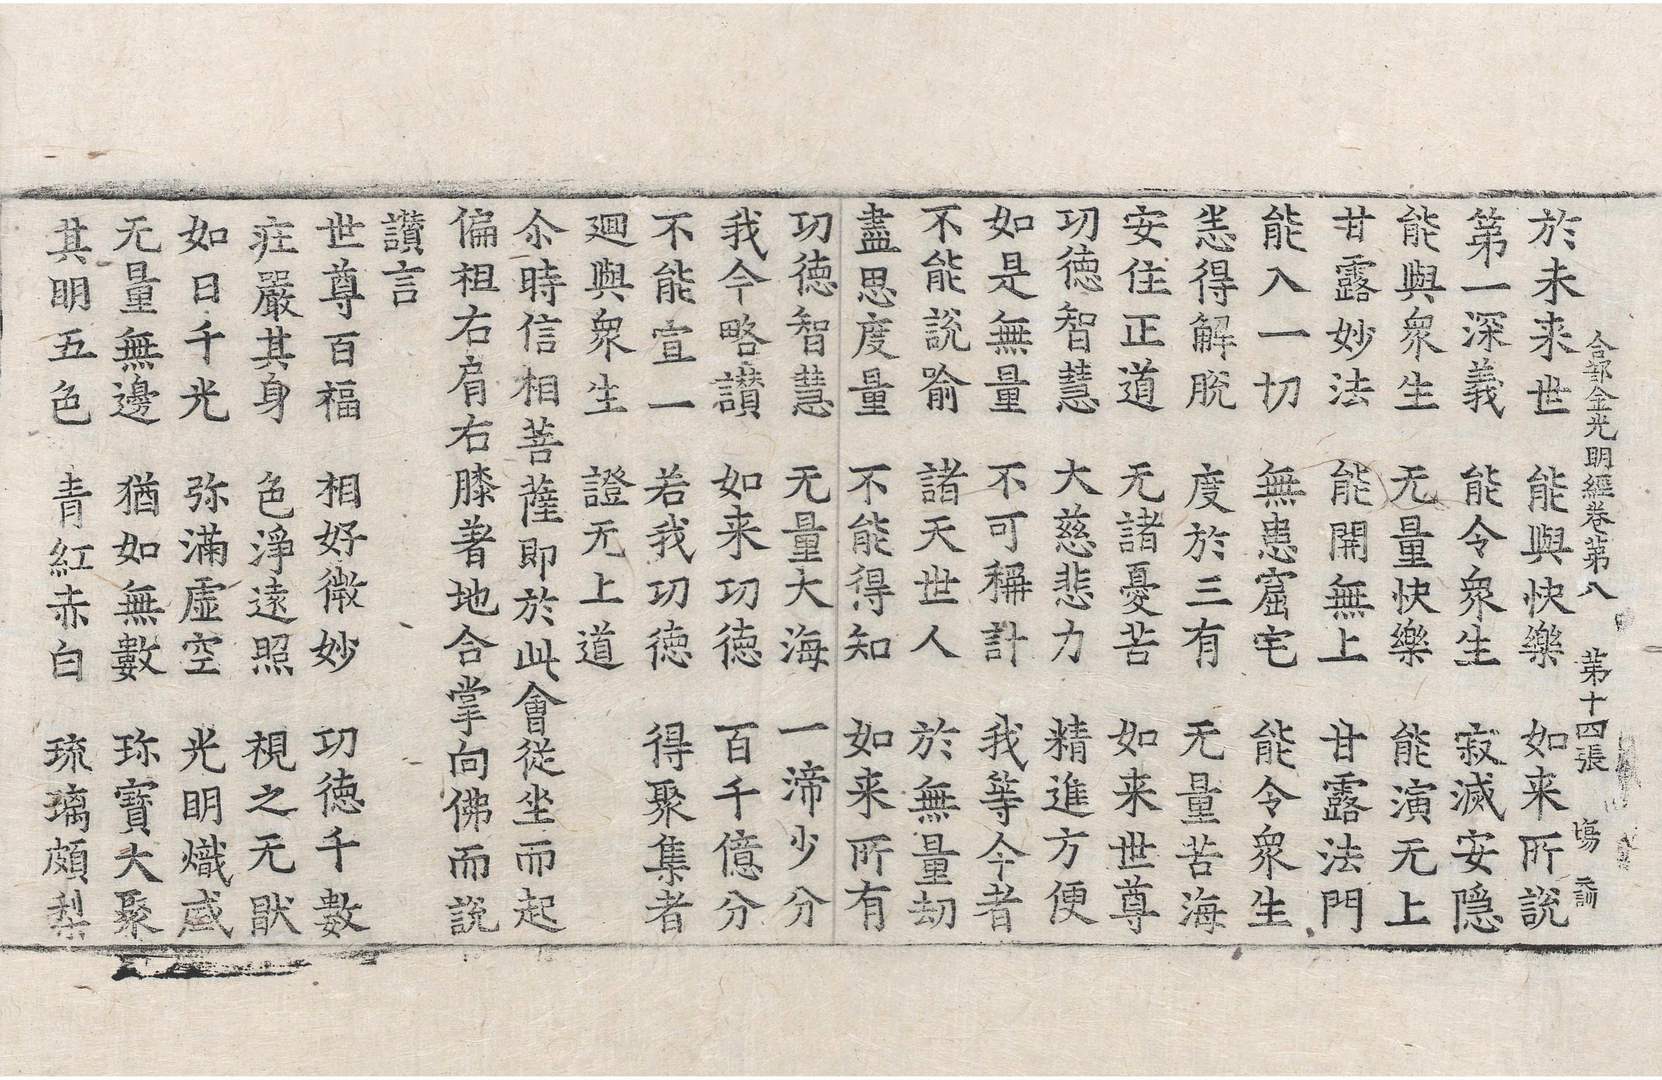 合部金光明經卷第八 第十四張 塲
於未来世 能與快樂 如来所說
第一深義 能令衆生 寂滅安隠
能與衆生 无量快樂 能演无上
甘露妙法 能開無上 甘露法門
能入一切 無患窟宅 能令衆生
悉得解脫 度於三有 无量苦海
安住正道 无諸憂苦 如来世尊
功德智慧 大慈悲力 精進方便
如是無量 不可稱計 我等今者
不能說喻 諸天世人 於無量劫
盡思度量 不能得知 如来所有
功德智慧 无量大海 一渧少分
我今略讃 如来功德 百千億分
不能宣一 若我功德 得聚集者
迴與衆生 證无上道
尒時信相菩薩即於此會從坐而起
偏袒右肩右膝著地合掌向佛而說
讃言
世尊百福 相好微妙 功德千數
莊嚴其身 色淨遠照 視之无猒
如日千光 弥滿虛空 光明熾盛
无量無邊 猶如無數 珎寶大聚
其明五色 青紅赤白 琉璃頗梨